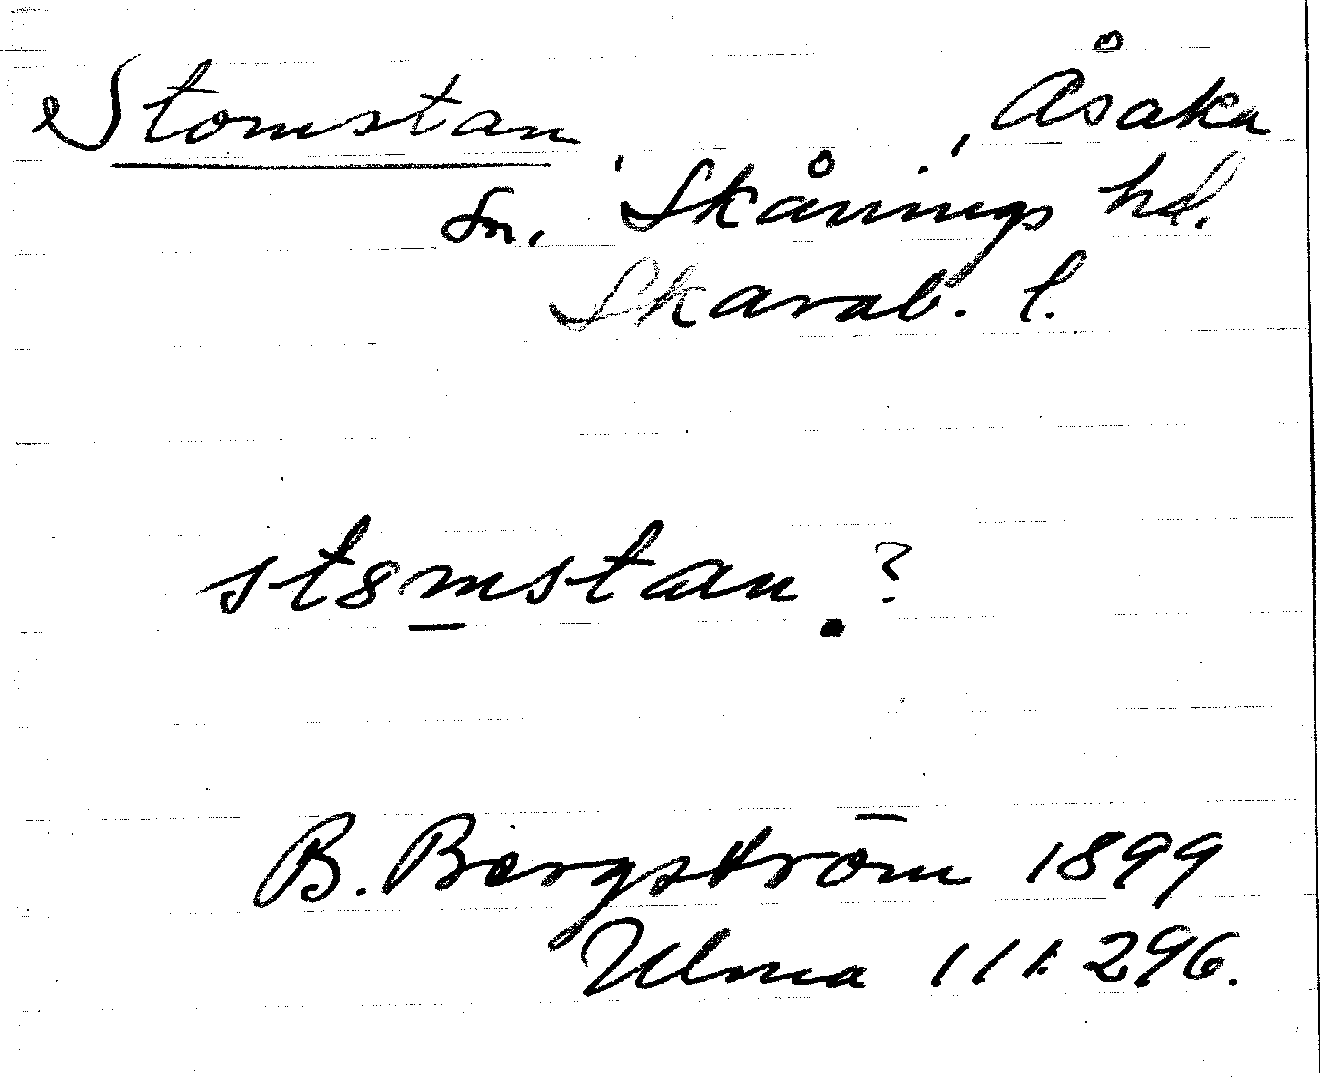 Stomstan, Åsaka
sn, Skånings hd.
Skarab. l.
st8mstan. ?
B. Bergström 1899
Ulma 111:296.